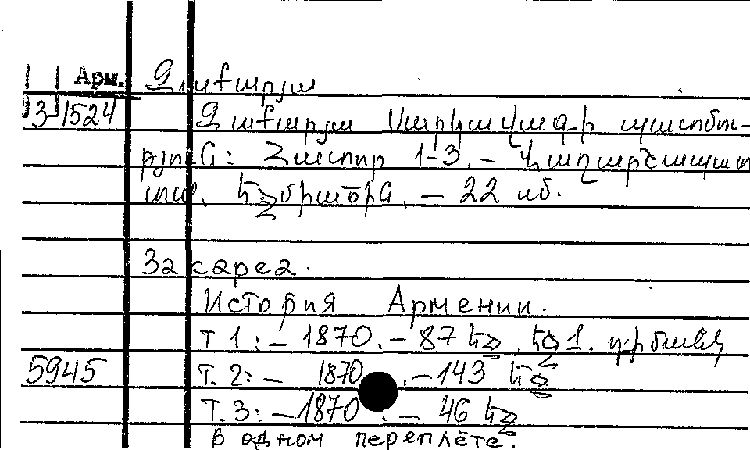 Арм. Զաքարյա
3-1524 Զաքարյա Սարկավագի պատմու-
րյուն: Հատոր 1-3. - Վաղարշապատ
տպ. Էջմիածին. — 22 սմ.
Закареа.
История Армении.
Т 1: — 1870. — 87 էջ , էջ 1.
5945 Т. 2: — 1870 . — 143 էջ
Т. 3: — 1870 . — 46 էջ
В одном переплёте.